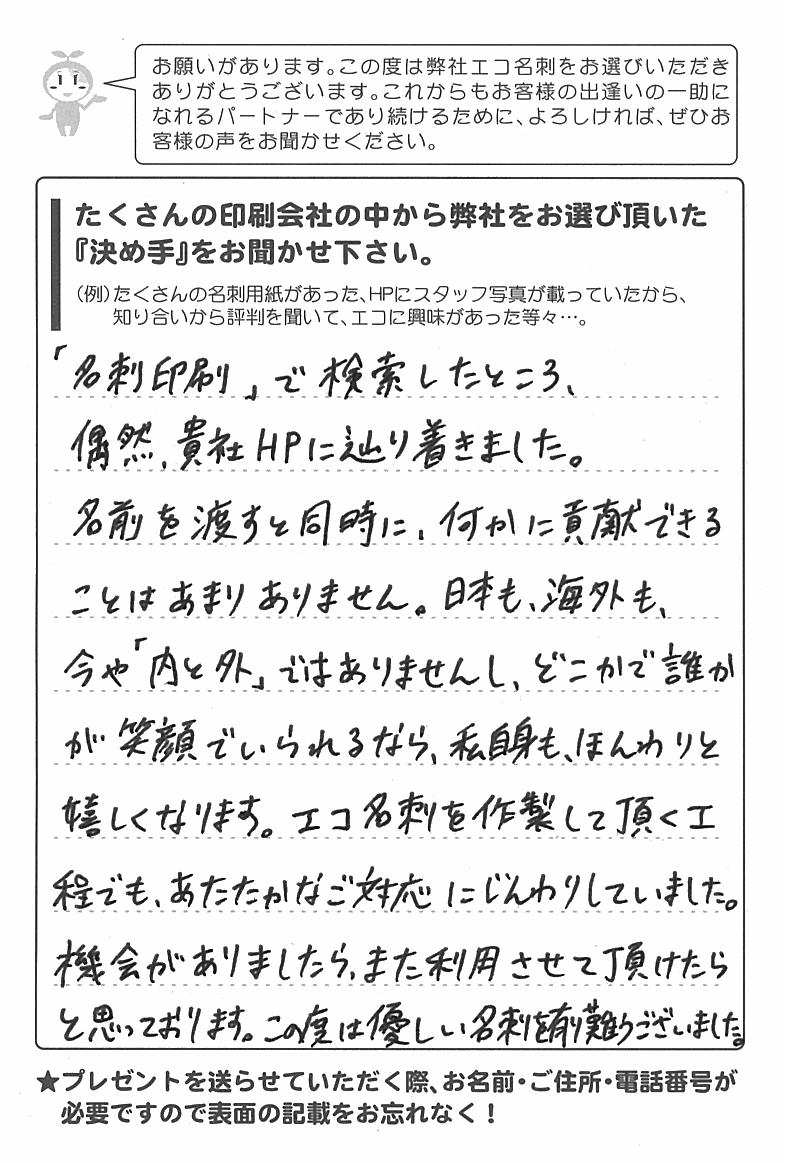 お願いがあります。この度は弊社エコ名刺をお選びいただき
ありがとうございます。これからもお客様の出逢いの一助に
なれるパートナーであり続けるために、よろしければ、ぜひお
客様の声をお聞かせください。
たくさんの印刷会社の中から弊社をお選び頂いた
『決め手』をお聞かせ下さい。
（例）たくさんの名刺用紙があった、HPにスタッフ写真が載っていたから、
知り合いから評判を聞いて、エコに興味があった等々…。
「名刺印刷」で検索したところ、
偶然、貴社HPに辿り着きました。
名前を渡すと同時に、何かに貢献できる
ことはあまりありません。日本も、海外も、
今や「内と外」ではありませんし、どこかで誰か
が笑顔でいられるなら、私自身も、ほんわりと
嬉しくなります。エコ名刺を作製して頂く工
程でも、あたたかなご対応にじんわりしていました。
機会がありましたら、また利用させて頂けたら
と思っております。この度は優しい名刺を有り難うございました。
★プレゼントを送らせていただく際、お名前・ご住所・電話番号が
必要ですので表面の記載をお忘れなく！